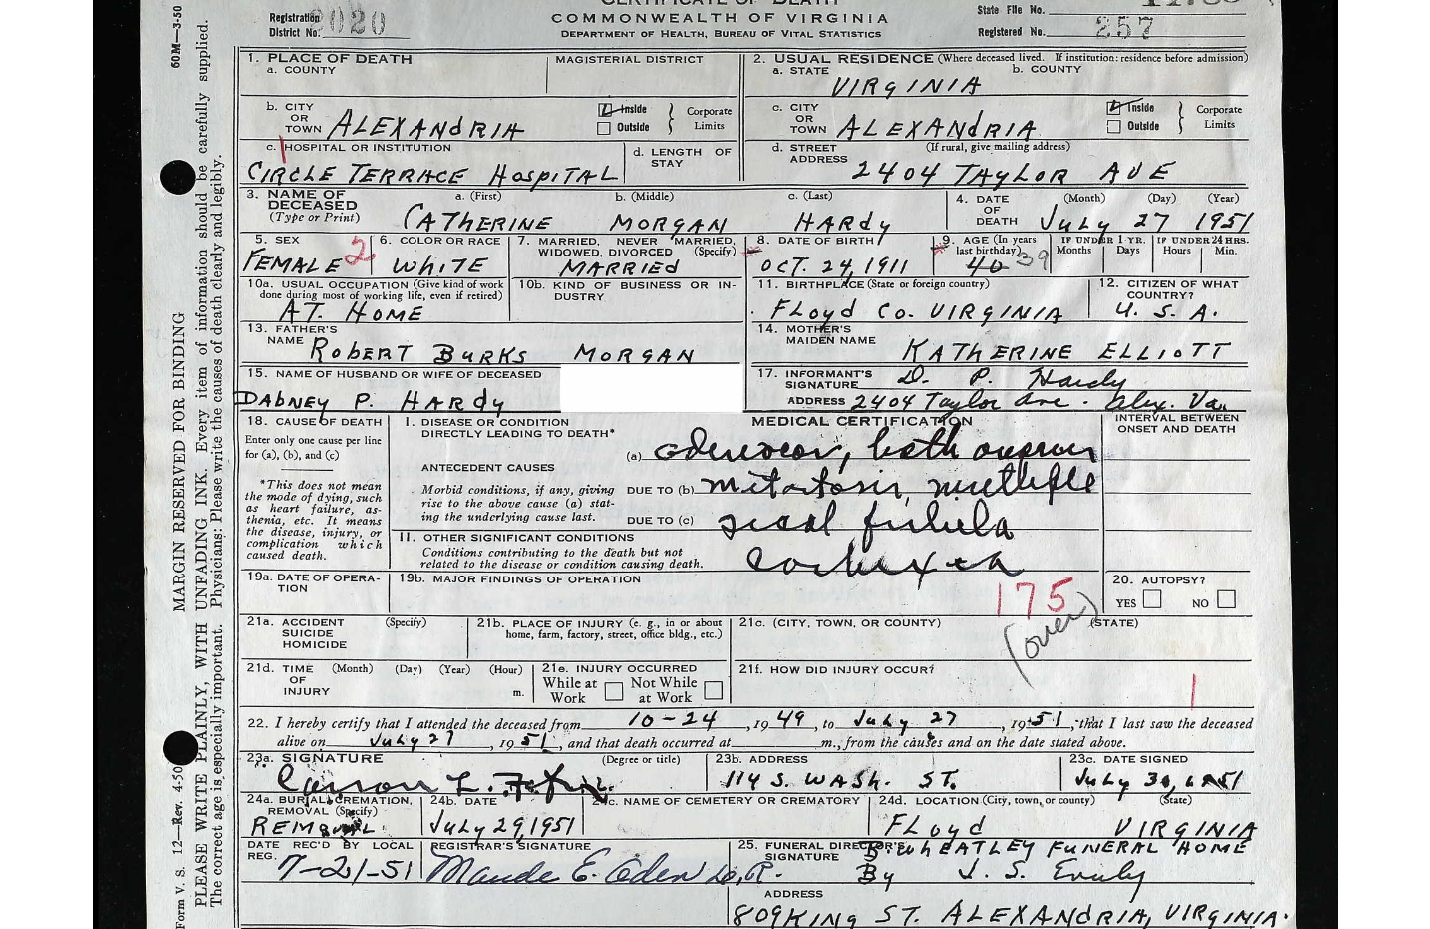 CERTIFICATE OF DEATH
COMMONWEALTH OF VIRGINIA
DEPARTMENT OF HEALTH, BUREAU OF VITAL STATISTICS
Registration District No. 2020
State File No.
Registered No. 257
60M—3-50
Form V. S. 12—Rev. 4-50
MARGIN RESERVED FOR BINDING
PLEASE WRITE PLAINLY, WITH UNFADING INK. Every item of information should be carefully supplied.
The correct age is especially important. Physicians: Please write the causes of death clearly and legibly.
1. PLACE OF DEATH
a. COUNTY
MAGISTERIAL DISTRICT
2. USUAL RESIDENCE (Where deceased lived. If institution: residence before admission)
a. STATE VIRGINIA
b. COUNTY
b. CITY OR TOWN ALEXANDRIA
Inside
Outside
Corporate Limits
c. CITY OR TOWN ALEXANDRIA
Inside
Outside
Corporate Limits
c. HOSPITAL OR INSTITUTION
CIRCLE TERRACE HospITAL
d. LENGTH OF STAY
d. STREET ADDRESS (If rural, give mailing address)
2404 TAYLOR AVE
3. NAME OF DECEASED (Type or Print)
a. (First) b. (Middle) c. (Last)
CATHERINE MORGAN HARDY
4. DATE OF DEATH (Month) (Day) (Year)
July 27 1951
5. SEX
FEMALE 2
6. COLOR OR RACE
WHITE
7. MARRIED, NEVER MARRIED, WIDOWED, DIVORCED (Specify)
MARRIEd
8. DATE OF BIRTH
OCT. 24, 1911
9. AGE (In years last birthday)
40 39
IF UNDER 1 YR. Months Days
IF UNDER 24 HRS. Hours Min.
10a. USUAL OCCUPATION (Give kind of work done during most of working life, even if retired)
AT. HOME
10b. KIND OF BUSINESS OR INDUSTRY
11. BIRTHPLACE (State or foreign country)
FLoyd Co. VIRGINIA
12. CITIZEN OF WHAT COUNTRY?
U. S. A.
13. FATHER'S NAME ROBERT BURKS MORGAN
14. MOTHER'S MAIDEN NAME KATHERINE ELLIOTT
15. NAME OF HUSBAND OR WIFE OF DECEASED
DABNEY P. HARdy
17. INFORMANT'S SIGNATURE D. P. Hardy
ADDRESS 2404 Taylor Ave. Alex. Va.
18. CAUSE OF DEATH
Enter only one cause per line for (a), (b), and (c)
*This does not mean the mode of dying, such as heart failure, asthenia, etc. It means the disease, injury, or complication which caused death.
MEDICAL CERTIFICATION
INTERVAL BETWEEN ONSET AND DEATH
I. DISEASE OR CONDITION DIRECTLY LEADING TO DEATH*
(a) both
ANTECEDENT CAUSES
Morbid conditions, if any, giving rise to the above cause (a) stating the underlying cause last.
DUE TO (b) multiple
DUE TO (c) fistula
II. OTHER SIGNIFICANT CONDITIONS
Conditions contributing to the death but not related to the disease or condition causing death.
19a. DATE OF OPERATION
19b. MAJOR FINDINGS OF OPERATION
175
(over)
20. AUTOPSY?
YES NO
21a. ACCIDENT SUICIDE HOMICIDE (Specify)
21b. PLACE OF INJURY (e. g., in or about home, farm, factory, street, office bldg., etc.)
21c. (CITY, TOWN, OR COUNTY) (STATE)
21d. TIME OF INJURY (Month) (Day) (Year) (Hour) m.
21e. INJURY OCCURRED
While at Work Not While at Work
21f. HOW DID INJURY OCCUR?
1
22. I hereby certify that I attended the deceased from 10-24, 1949, to July 27, 1951, that I last saw the deceased
alive on July 27, 1951, and that death occurred at m., from the causes and on the date stated above.
23a. SIGNATURE (Degree or title)
23b. ADDRESS
114 S. WASH. ST.
23c. DATE SIGNED
July 30, 1951
24a. BURIAL, CREMATION, REMOVAL (Specify)
REMOVAL
24b. DATE
July 29, 1951
24c. NAME OF CEMETERY OR CREMATORY
24d. LOCATION (City, town, or county) (State)
FLoyd VIRGINIA
DATE REC'D BY LOCAL REG. 7-21-51
REGISTRAR'S SIGNATURE
Maude E.
25. FUNERAL DIRECTOR'S SIGNATURE
WHEATLEY FUNERAL HOME
By J. S.
ADDRESS
809 KING ST. ALEXANDRIA, VIRGINIA.